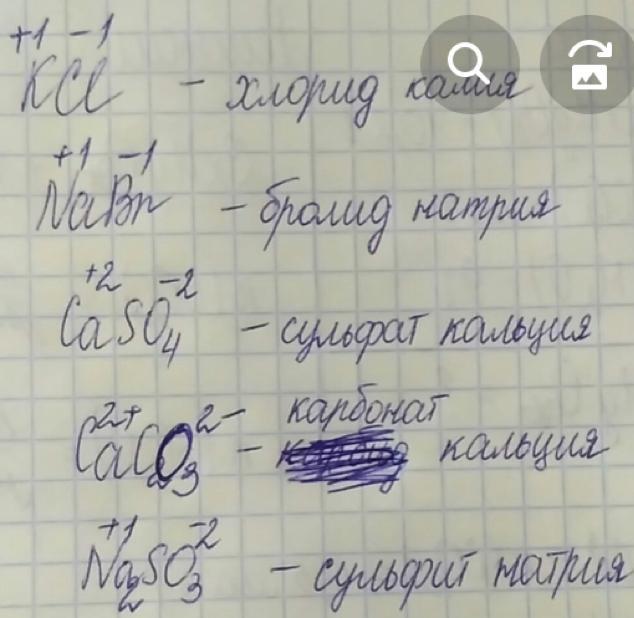 +1 -1
KCl - хлорид калия
+1 -1
NaBr - бромид натрия
+2 -2
CaSO4 - сульфат кальция
2+ 2- карбонат
CaCO3 - кальция
+1 -2
Na2SO3 - сульфит натрия